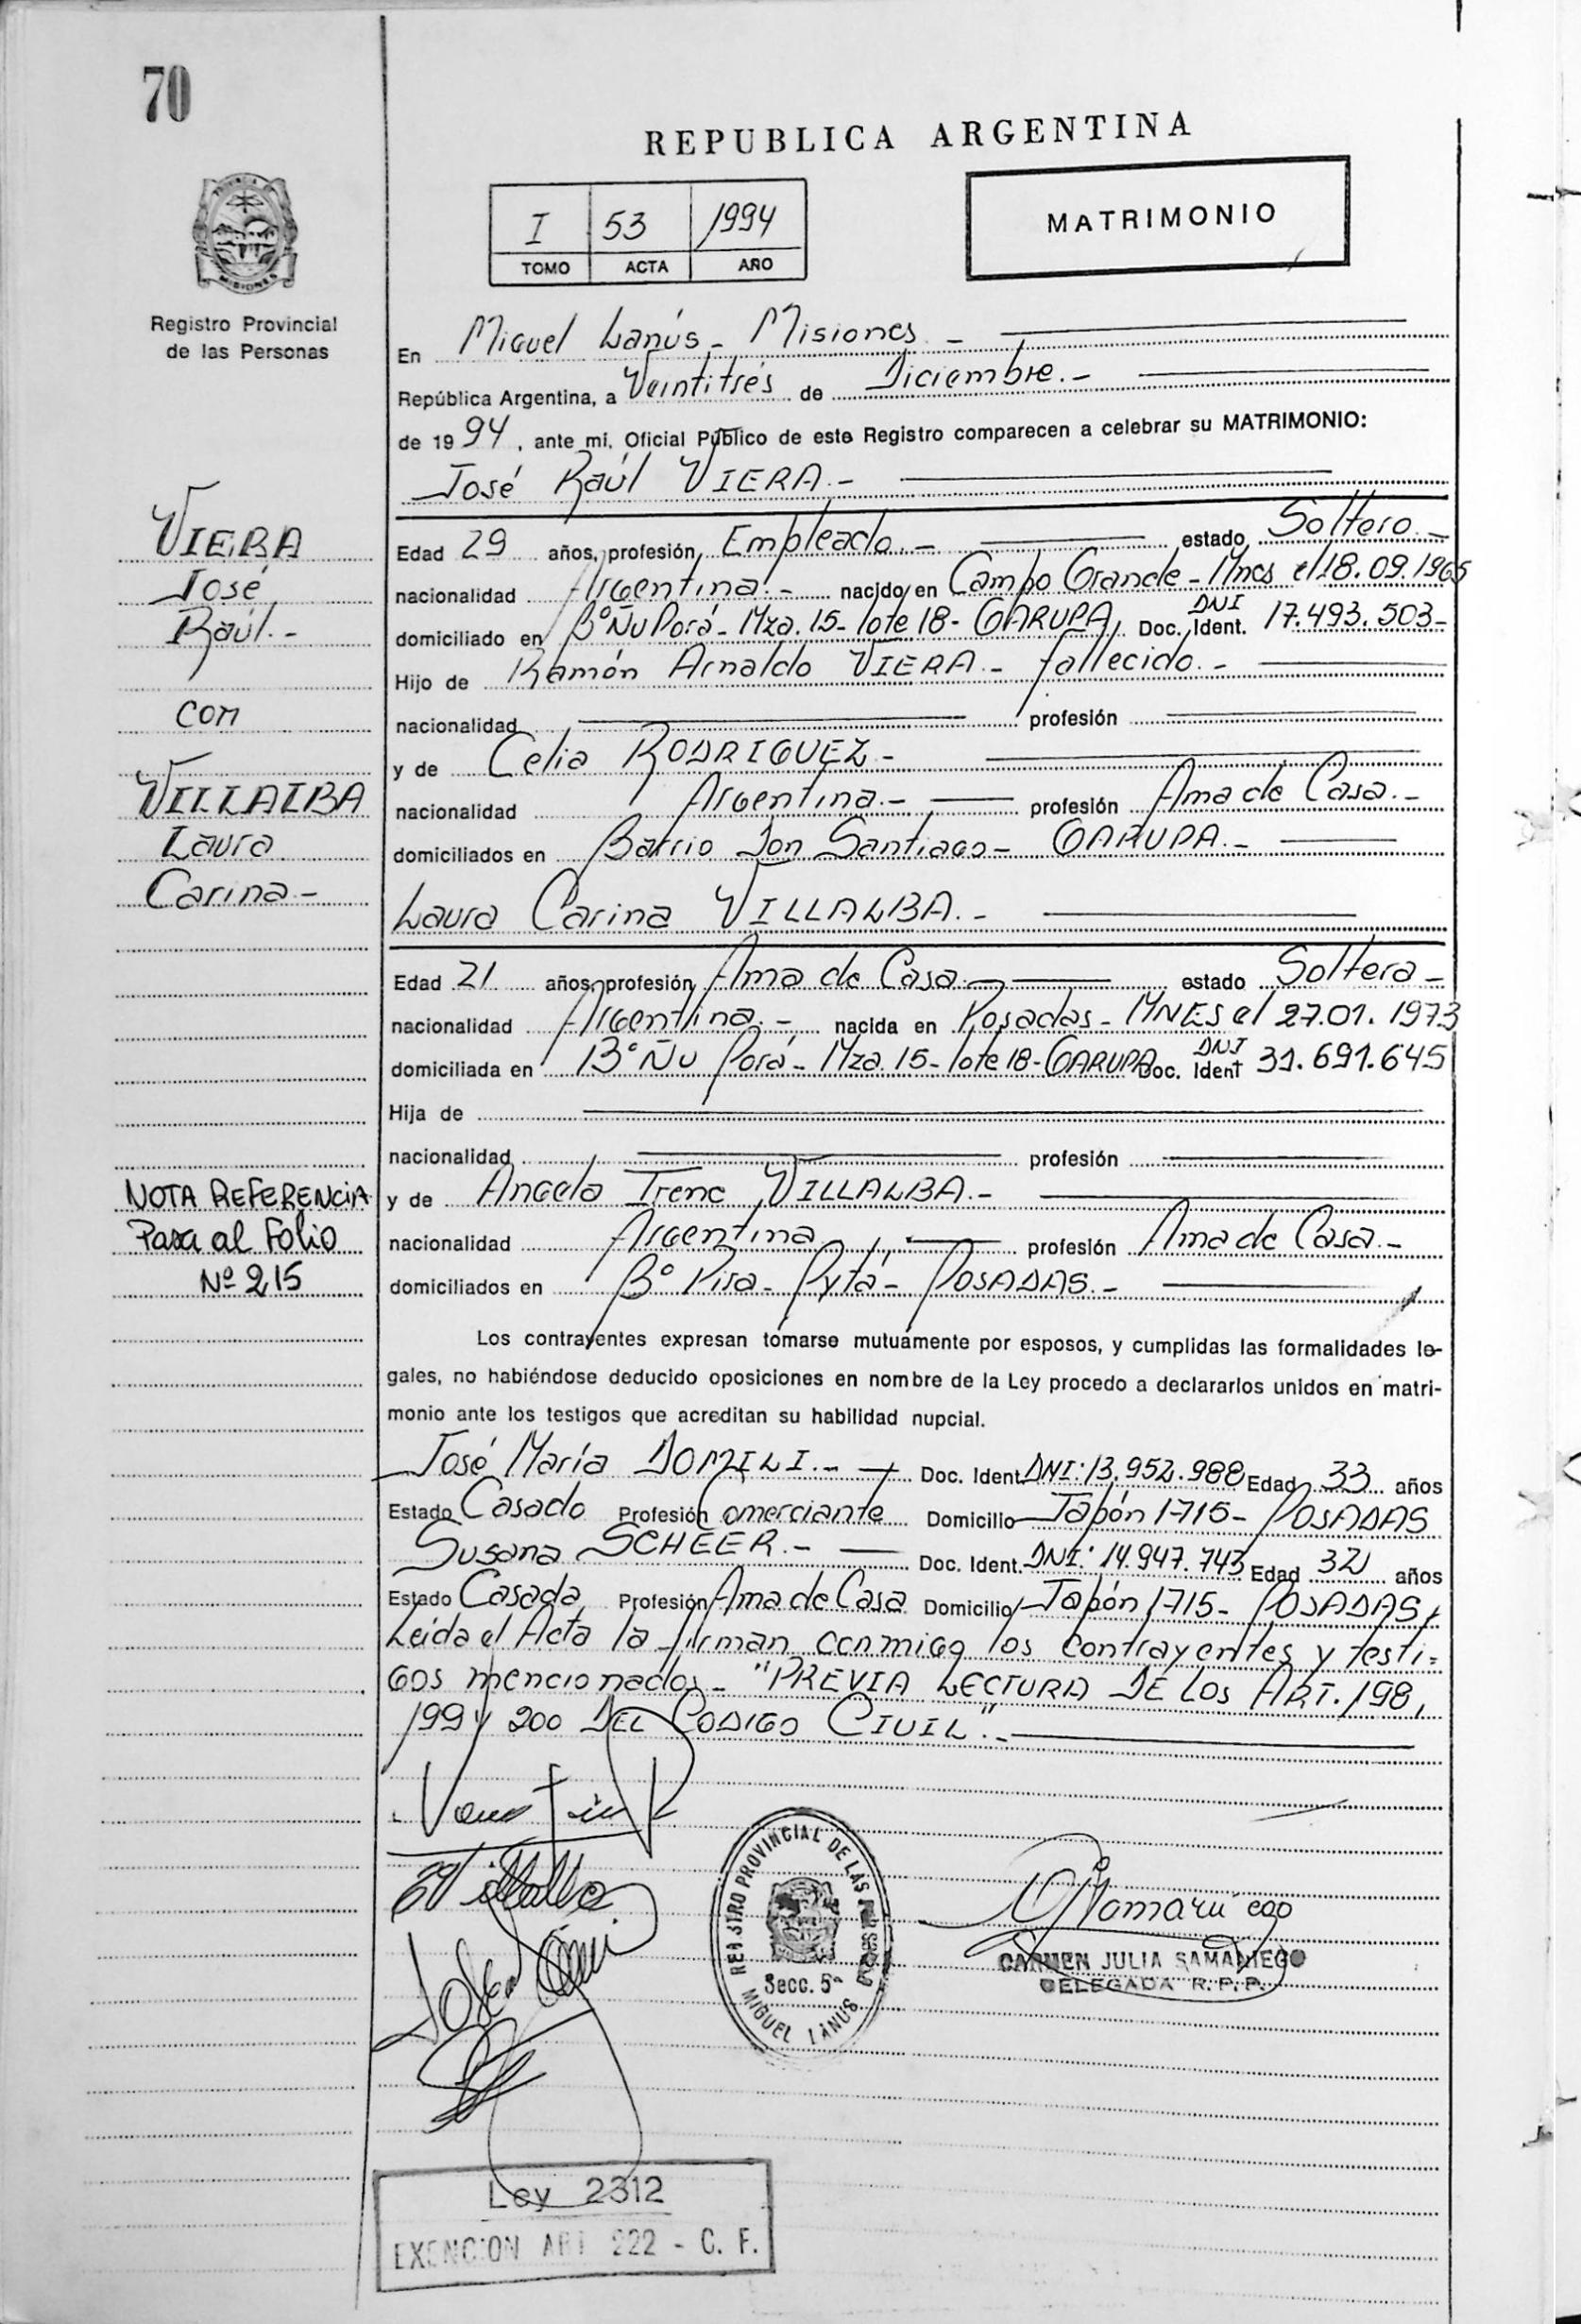 70
REPUBLICA ARGENTINA
I 53 1994
TOMO ACTA AÑO
MATRIMONIO
Registro Provincial
de las Personas
En Miguel Lanús - Misiones. -
República Argentina, a Veintitrés de Diciembre. -
de 19 94, ante mi, Oficial Público de este Registro comparecen a celebrar su MATRIMONIO:
José Raúl VIERA. -
VIERA
José
Raúl. -
con
VILLALBA
Laura
Carina -
Edad 29 años, profesión Empleado. - estado Soltero. -
nacionalidad Argentina. - nacido en Campo Grande - Mnes el 18.09.1965
domiciliado en B° Ñu Porá - Mza. 15 - lote 18 - GARUPA Doc. Ident. DNI 17.493.503 -
Hijo de Ramón Arnaldo VIERA. - fallecido. -
nacionalidad profesión
y de Celia RODRIGUEZ -
nacionalidad Argentina. - profesión Ama de Casa. -
domiciliados en Barrio Don Santiago - GARUPA. -
Laura Carina VILLALBA. -
Edad 21 años, profesión Ama de Casa. - estado Soltera -
nacionalidad Argentina. - nacida en Posadas - MNES el 27.01.1973
domiciliada en B° Ñu Porá - Mza. 15 - lote 18 - GARUPA Doc. Ident DNI 31.691.645
Hija de
nacionalidad profesión
y de Angela Irene VILLALBA. -
nacionalidad Argentina profesión Ama de Casa. -
domiciliados en B° Pira - Pytá - POSADAS. -
NOTA REFERENCIA
Pasa al Folio
Nº 215
Los contrayentes expresan tomarse mutuamente por esposos, y cumplidas las formalidades le-
gales, no habiéndose deducido oposiciones en nombre de la Ley procedo a declararlos unidos en matri-
monio ante los testigos que acreditan su habilidad nupcial.
José María DOMILI. - Doc. Ident. DNI: 13.952.988 Edad 33 años
Estado Casado Profesión Comerciante Domicilio Japón 1715 - POSADAS
Susana SCHEER. - Doc. Ident. DNI: 14.947.743 Edad 32 años
Estado Casada Profesión Ama de Casa Domicilio Japón 1715 - POSADAS
Leida el Acta la firman conmigo los contrayentes y testi=
gos mencionados - "PREVIA LECTURA DE LOS ART. 198,
199 y 200 DEL CODIGO CIVIL". -
REGISTRO PROVINCIAL DE LAS PERSONAS
Secc. 5ª
MIGUEL LANUS
CARMEN JULIA SAMANIEGO
DELEGADA R.P.P.
Ley 2312
EXENCION ART 222 - C. F.